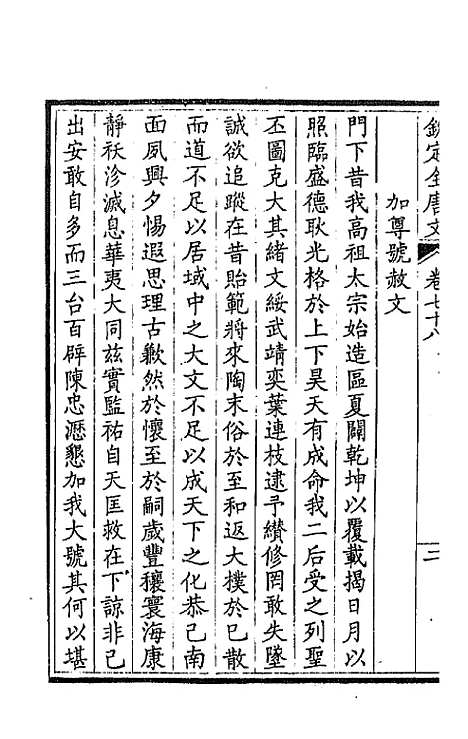 欽定全唐文 卷七十八 二
加尊號赦文
門下昔我高祖太宗始造區夏闢乾坤以覆載揭日月以
照臨盛德耿光格於上下昊天有成命我二后受之列聖
丕圖克大其緒文綏武靖奕葉連枝逮予纘修罔敢失墜
誠欲追蹤在昔貽範將來陶末俗於至和返大樸於已散
而道不足以居域中之大文不足以成天下之化恭己南
面夙興夕惕遐思理古歉然於懷至於嗣歲豐穰寰海康
靜祅沴滅息華夷大同茲實監祐自天匡救在下諒非己
出安敢自多而三台百辟陳忠瀝懇加我大號其何以堪